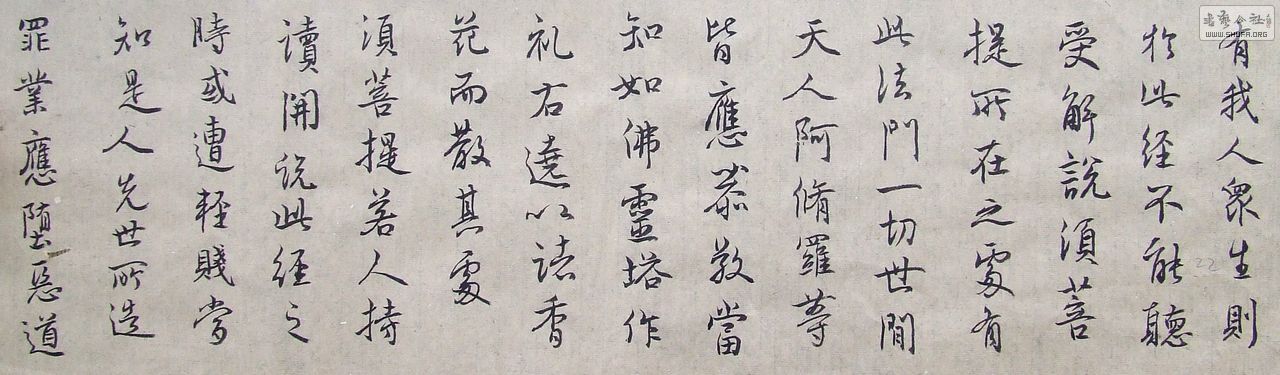 有我人衆生則
於此经不能聽
受解説須菩
提所在之處有
此法門一切世間
天人阿脩羅等
皆應恭敬當
知如佛靈塔作
礼右遶以諸香
花而散其處
須菩提若人持
讀開説此經之
時或遭輕賤當
知是人先世所造
罪業應堕惡道
書藝公社
WWW.SHUFA.ORG
22